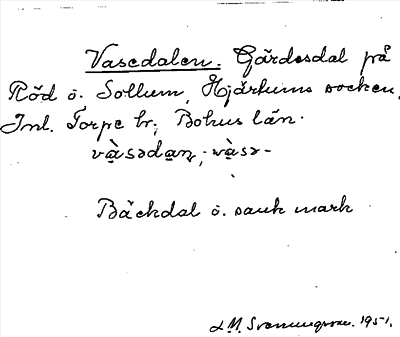 Vasedalen. Gärdesdal på
Röd o. Sollum, Hjärtums socken,
Inl. Torpe hr, Bohus län.
vàsədan, vàsə-
Bäckdal o. sank mark
1951.